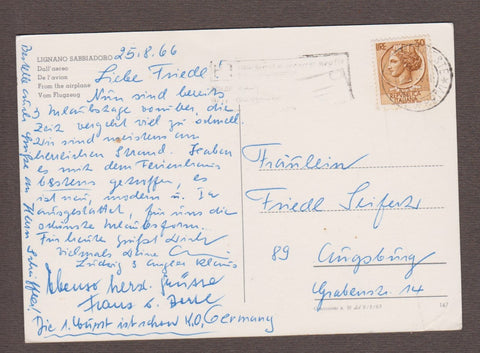 LIGNANO SABBIADORO
Dall'aereo
De l'avion
From the airplane
Vom Flugzeug
25.8.66
Liebe Friedl!
Nun sind bereits
3 Urlaubstage vorüber, die
Zeit vergeht viel zu schnell
Wir sind meistens am
herrlichen Strand. Haben
es mit dem Ferienhaus
bestens getroffen, es
ist neu, modern u. 
ausgestattet, für uns die
schönste Urlaubsform.
Für heute grüßt Dich
vielmals Deine
Ludwig & Angela Klaus
Ebenso herzl. Grüsse
Hans u.
Die 1. Wurst ist schon K.O.
Bestelle auch Grüße an Herrn
LIRE 30
ITALIANA
Fräulein
Friedl Seifert
89 Augsburg
Grabenstr. 14
Germany
147